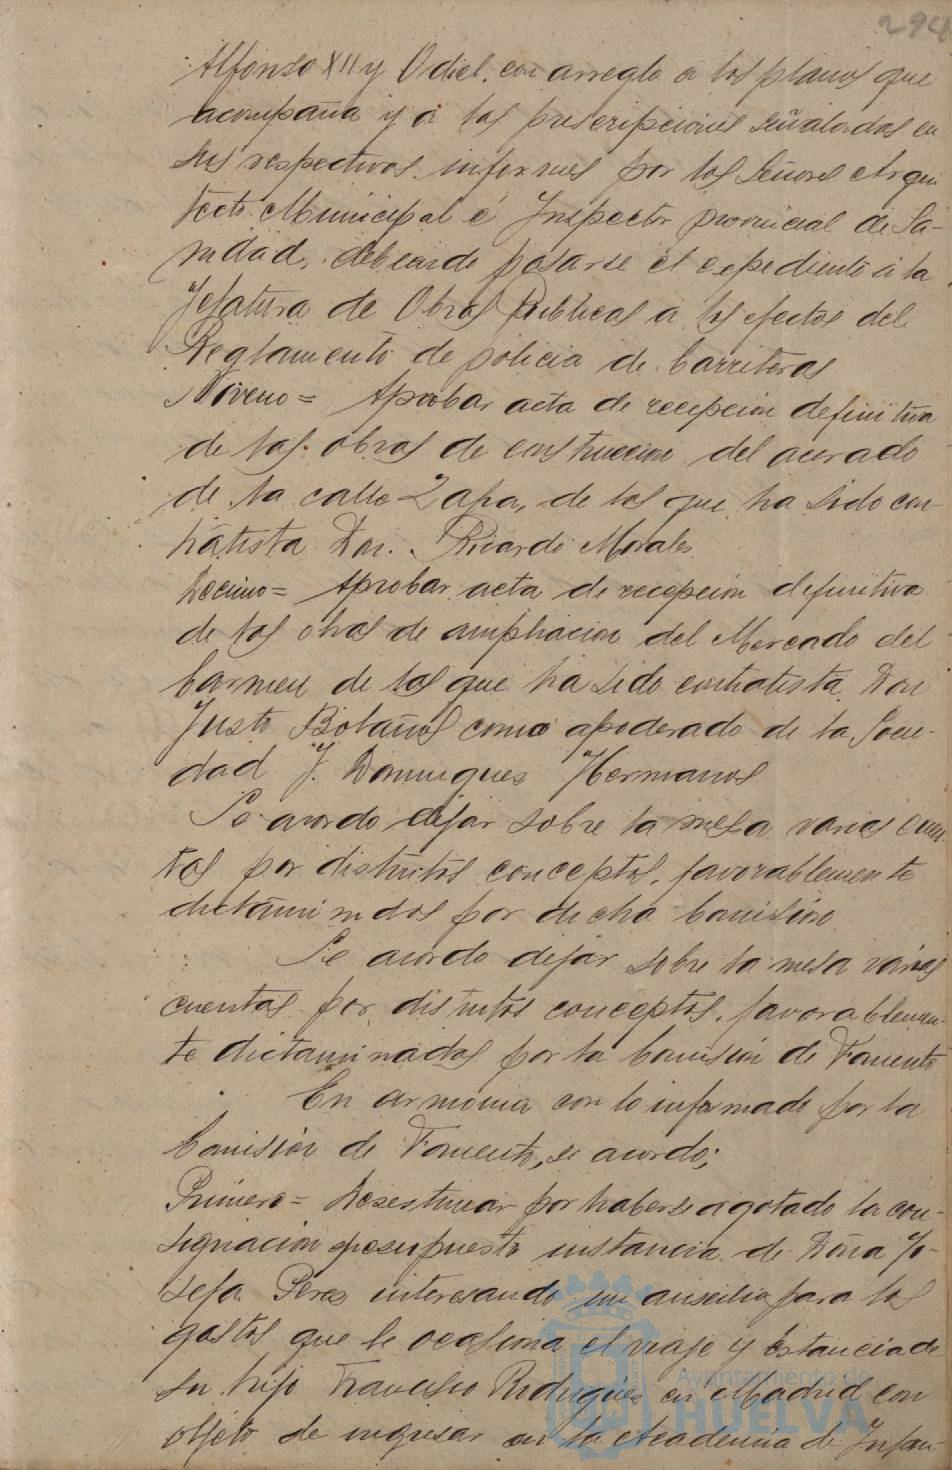 294
Alfonso XII y Odiel, con arreglo á los planos que
acompaña y á las prescripciones señaladas en
sus respectivos informes por los Señores Arqui
tecto Municipal é Inspector provincial de Sa-
nidad, debiendo pasarse el expediente á la
Jefatura de Obras Publicas a los efectos del
Reglamento de policia de Carreteras
Noveno = Aprobar acta de recepcion definitiva
de las obras de construccion del acerado
de la calle Zafra, de las que ha sido con-
tratista Don. Ricardo Morales
Decimo = Aprobar acta de recepcion definitiva
de las obras de ampliacion del Mercado del
Carmen de las que ha sido contratista Don
Justo Bolaños como apoderado de la Socie-
dad J. Domingues Hermanos
Se acordo dejar sobre la mesa varias cuen
tas por distintos conceptos, favorablemente
dictaminados por dicha Comision
Se acordo dejar sobre la mesa varias
cuentas por distintos conceptos, favorablemen-
te dictaminadas por la Comisión de Fomento
En armonia con lo informado por la
Comisión de Fomento, se acordo;
Primero = Desestimar por haberse agotado la con-
signacion presupuesto instancia de Doña Jo-
sefa Peres interesando un auxilio para los
gastos que le ocasiona el viaje y estancia de
su hijo Francisco Rodrigues en Madrid con
objeto de ingresar en la Academia de Infan-
Ayuntamiento de
HUELVA